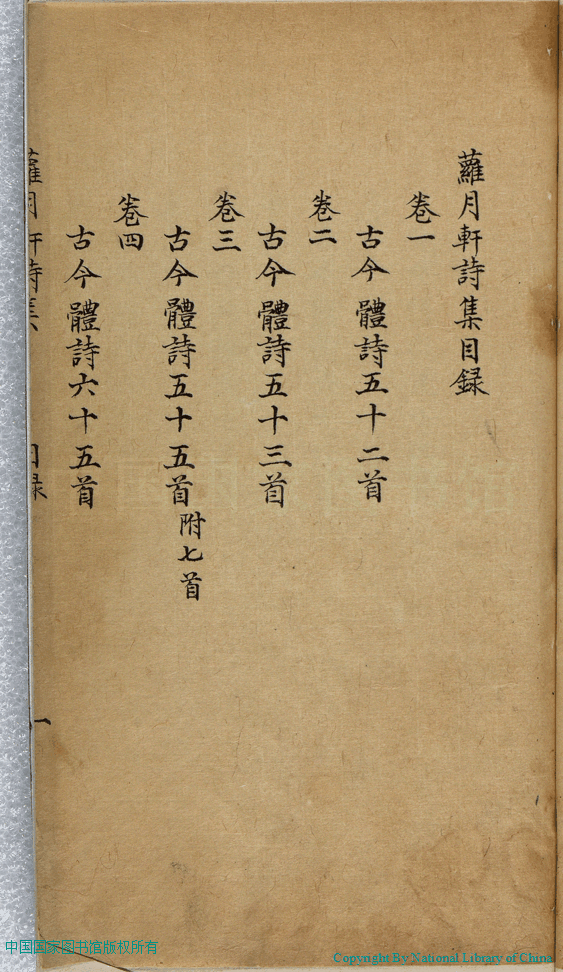 蘿月軒詩集目録
卷一
古今體詩五十二首
卷二
古今體詩五十三首
卷三
古今體詩五十五首附七首
卷四
古今體詩六十五首
蘿月軒詩集
目録
一
中国国家图书馆版权所有
Copyright By National Library of China